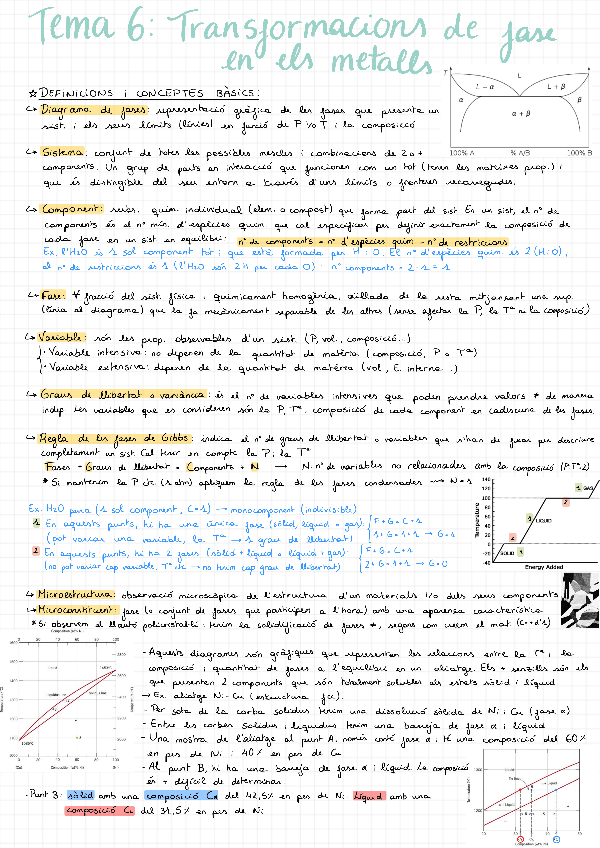 Tema 6: Transformacions de fase
en els metalls
☆ DEFINICIONS i CONCEPTES BÀSICS:
↳ Diagrama de fases: representació gràfica de les fases que presenta un
sist. i els seus límits (línies) en funció de P i/o T i la composició
T L
L - α L + β
α β
α + β
100% A % A/B 100% B
↳ Sistema: conjunt de totes les possibles mescles i combinacions de 2 o +
components. Un grup de parts en interacció que funcionen com un tot (tenen les mateixes prop.) i
que és distingible del seu entorn a través d'uns límits o fronteres recorregudes.
↳ Component: subs. quím. individual (elem. o compost) que forma part del sist. En un sist, el nº de
components és el nº mín. d'espècies quím que cal especificar per definir exactament la composició de
cada fase en un sist en equilibri: nº de components = nº d'espècies quím - nº de restriccions
Ex. l'H2O és 1 sol component tot i que està formada per H i O. El nº d'espècies quím. és 2 (H i O),
el nº de restriccions és 1 (l'H2O són 2 H per cada O) : nº components = 2 - 1 = 1
↳ Fase: ∀ fracció del sist. física i químicament homogènia, aïllada de la resta mitjançant una sup.
(línia al diagrama) que la fa mecànicament separable de les altres (sense afectar la P, la Tª ni la composició)
↳ Variable: són les prop. observables d'un sist. (P, vol., composició...)
· Variable intensiva: no depenen de la quantitat de matèria (composició, P o Tª)
· Variable extensiva: depenen de la quantitat de matèria (vol, E. interna...)
↳ Graus de llibertat o variància: és el nº de variables intensives que poden prendre valors ≠ de manera
indep. Les variables que es consideren són la P, Tª i composició de cada component en cadascuna de les fases.
↳ Regla de les fases de Gibbs: indica el nº de graus de llibertat o variables que s'han de fixar per descriure
completament un sist. Cal tenir en compte la P i la Tª
Fases + Graus de llibertat = Components + N → N: nº de variables no relacionades amb la composició (P i T = 2)
* Si mantenim la P ctc. (1 atm) apliquem la regla de les fases condensades → N = 1
Ex. H2O pura (1 sol component, C=1) → monocomponent (indivisible)
1 En aquests punts, hi ha una única fase (sòlid, líquid o gas): F + G = C + 1
(pot variar una variable, la Tª → 1 grau de llibertat) 1 + G = 1 + 1 → G = 1
2 En aquests punts, hi ha 2 fases (sòlid + líquid o líquid i gas): F + G = C + 1
(no pot variar cap variable, Tª ctc → no tenim cap grau de llibertat) 2 + G = 1 + 1 → G = 0
Temperature
140
120
100
80
60
40
20
0
-20
-40
1 GAS
2
1 LIQUID
2
SOLID 1
Energy Added
↳ Microestructura: observació microscòpica de l'estructura d'un material i/o dels seus components
↳ Microconstituent: fase (o conjunt de fases que participen a l'hora) amb una aparença característica
* Si observem el llautó policristal·lí: tenim la solidificació de fases ≠, segons com creem el mat.
- Aquests diagrames són gràfiques que representen les relacions entre la Tª i la
composició i quantitat de fases a l'equilibri en un aliatge. Els + senzills són els
que presenten 2 components que són totalment solubles als estats sòlid i líquid
→ Ex. aliatge Ni-Cu (estructura fcc).
- Per sota de la corba solidus tenim una dissolució sòlida de Ni i Cu (fase α)
- Entre les corbes solidus i liquidus tenim una barreja de fase α i líquid
- Una mostra de l'aliatge al punt A, només conté fase α i té una composició del 60%
en pes de Ni i 40% en pes de Cu
- Al punt B, hi ha una barreja de fase α i líquid. La composició
és + difícil de determinar
· Punt B: sòlid amb una composició Cα del 42,5% en pes de Ni. Líquid amb una
composició CL del 31,5% en pes de Ni